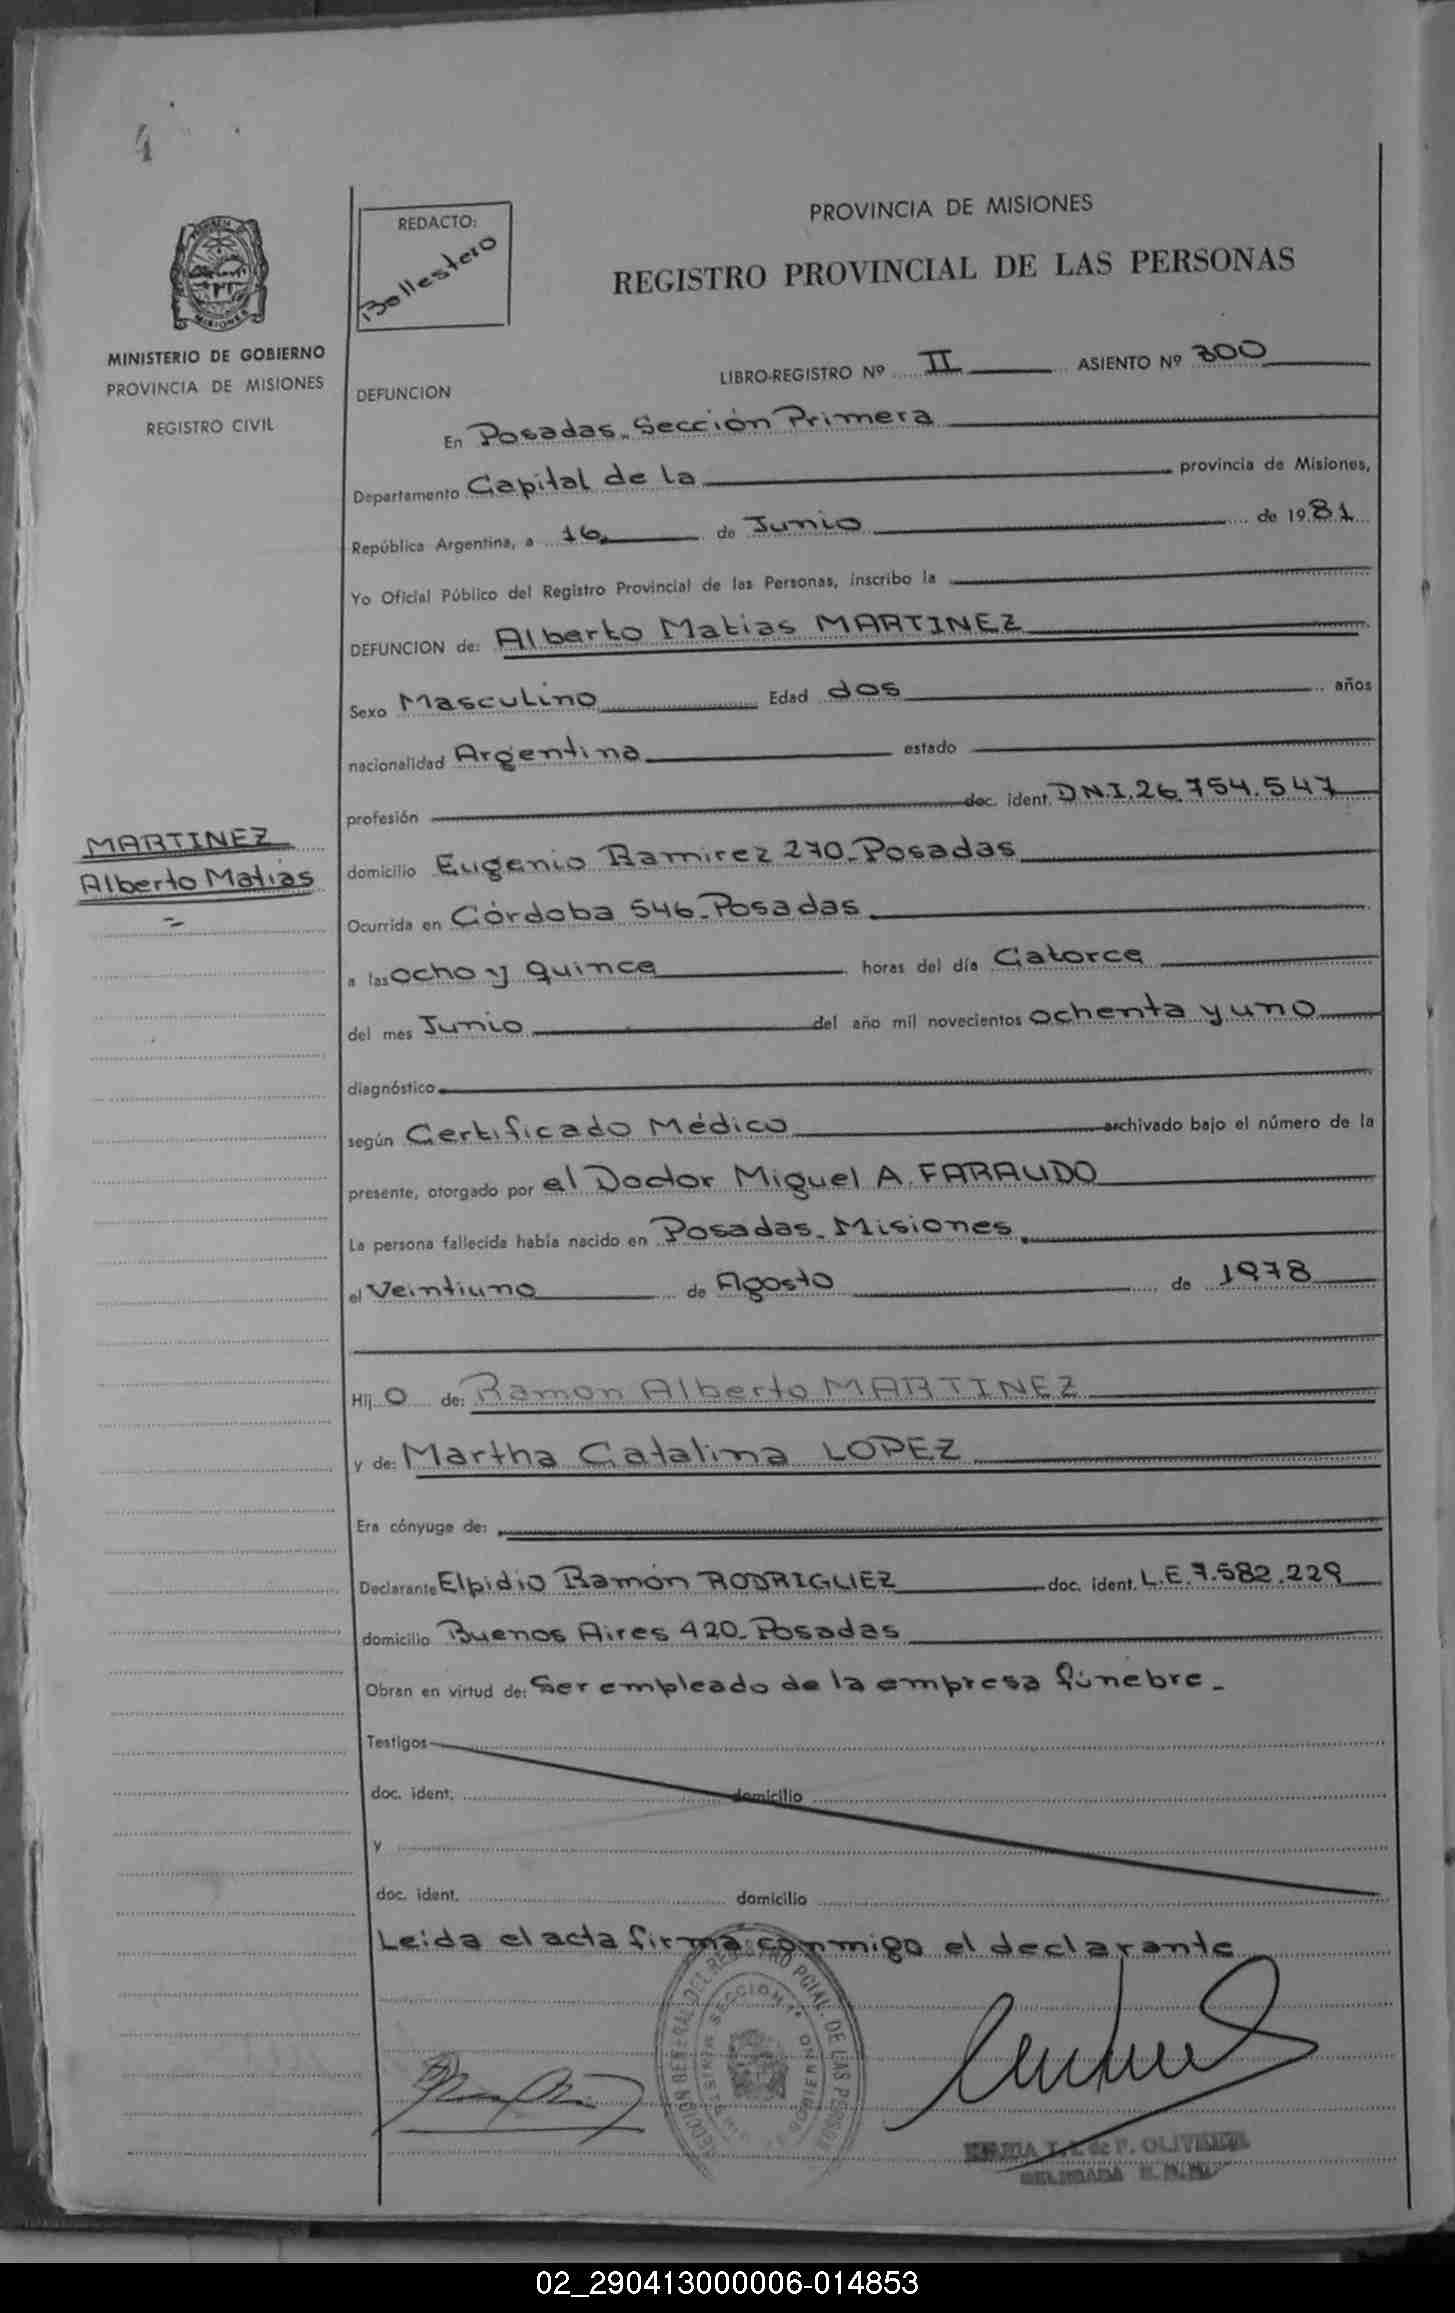 4
PROVINCIA DE MISIONES
REGISTRO PROVINCIAL DE LAS PERSONAS
REDACTO:
Ballestero
MISIONES
MINISTERIO DE GOBIERNO
PROVINCIA DE MISIONES
REGISTRO CIVIL
LIBRO-REGISTRO Nº II ASIENTO Nº 300
DEFUNCION
En Posadas. Sección Primera
Departamento Capital de la provincia de Misiones,
República Argentina, a 16 de Junio de 1981
Yo Oficial Público del Registro Provincial de las Personas, inscribo la
DEFUNCION de: Alberto Matias MARTINEZ
Sexo Masculino Edad dos años
nacionalidad Argentina estado
profesión doc. ident. D.N.I. 26.754.547
MARTINEZ
Alberto Matias
domicilio Eugenio Ramirez 270-Posadas
Ocurrida en Córdoba 546-Posadas
a las ocho y quince horas del día Catorce
del mes Junio del año mil novecientos ochenta y uno
diagnóstico
según Certificado Médico archivado bajo el número de la
presente, otorgado por el Doctor Miguel A. FARAUDO
La persona fallecida había nacido en Posadas. Misiones
el Veintiuno de Agosto de 1978
Hij o de: Ramon Alberto MARTINEZ
y de: Martha Catalina LOPEZ
Era cónyuge de:
Declarante Elpidio Ramón RODRIGUEZ doc. ident. L.E. 7.582.229
domicilio Buenos Aires 420-Posadas
Obran en virtud de: Ser empleado de la empresa fúnebre.-
Testigos
doc. ident. domicilio
y
doc. ident. domicilio
Leida el acta firma conmigo el declarante
SECCION 1ª
DE LAS
02_290413000006-014853